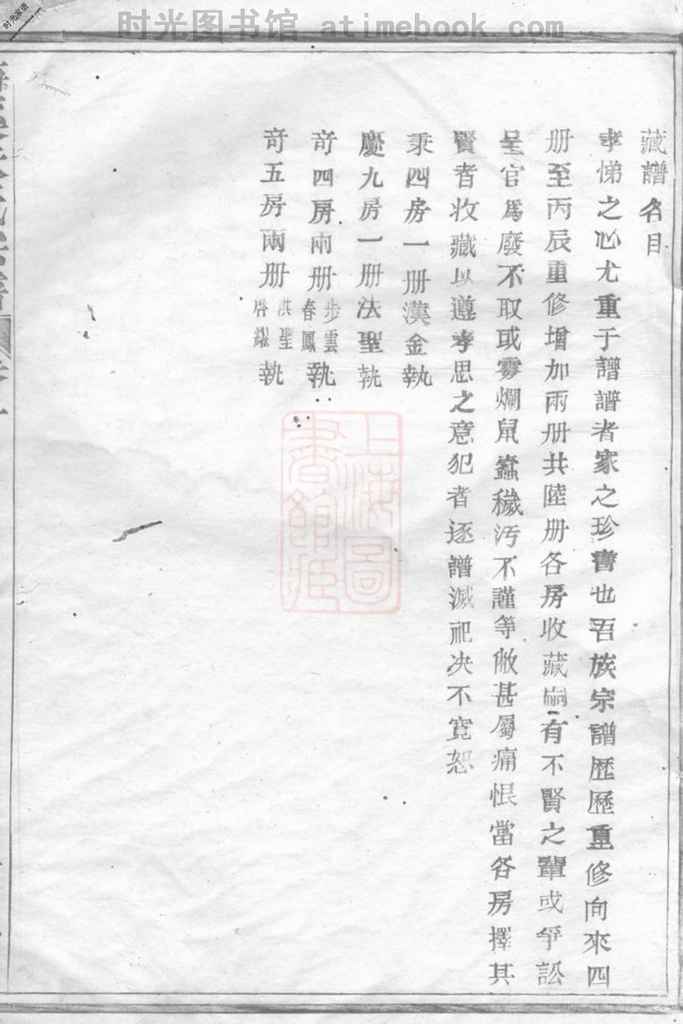 时光图书馆 atimebook.com
时光家谱
藏譜名目
孝悌之心尤重于譜譜者家之珍書也吾族宗譜歷歷重修向來四
册至丙辰重修增加兩册共陸册各房收藏嗣有不賢之輩或爭訟
呈官爲廢不取或霉爛鼠蠹穢汚不謹等敝甚屬痛恨當各房擇其
賢者收藏以遵孝思之意犯者逐譜滅祀决不寬恕
秉四房一册漢金執
慶九房一册法聖執
奇四房兩册步雲春鳳執
奇五房兩册洪聖啓繼執
上海圖書館藏